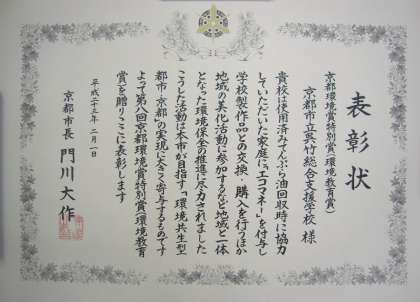 表彰状
京都環境賞特別賞(環境教育賞)
京都市立呉竹総合支援学校 様
貴校は使用済みてんぷら油回収時に協力
していただいた家庭に「エコマネー」を付与し
学校製作品との交換、購入を行うほか
地域の美化活動に参加するなど地域と一体
となった環境保全の推進に尽力されました
こうした活動は本市が目指す「環境共生型
都市・京都」の実現に大きく寄与するものです
よって第八回京都環境賞特別賞(環境教育
賞)を贈りここに表彰します
平成二十三年 二月一日
京都市長 門川大作